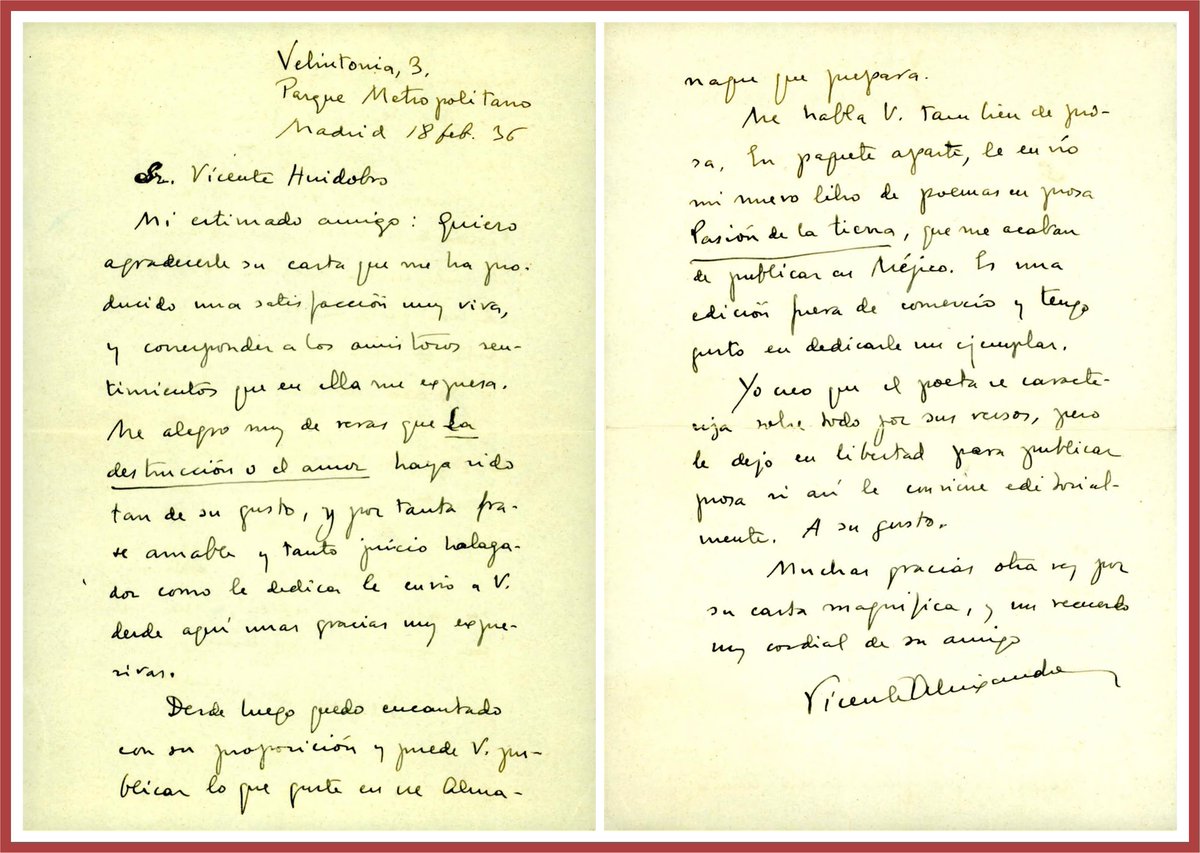 Velintonia, 3.
Parque Metropolitano
Madrid 18 feb. 36
Sr. Vicente Huidobro
Mi estimado amigo: Quiero
agradecerle su carta que me ha pro-
ducido una satisfacción muy viva,
y corresponder a los amistosos sen-
timientos que en ella me expresa.
Me alegro muy de veras que La
destrucción o el amor haya sido
tan de su gusto, y por tanta fra-
se amable y tanto juicio halaga-
dor como le dedica le envío a V.
desde aquí unas gracias muy expre-
sivas.
Desde luego quedo encantado
con su proposición y puede V. pu-
blicar lo que guste en ese Alma-
naque que prepara.
Me habla V. tambien de pro-
sa. En paquete aparte, le envío
mi nuevo libro de poemas en prosa
Pasión de la tierra, que me acaban
de publicar en Méjico. Es una
edición fuera de comercio y tengo
gusto en dedicarle un ejemplar.
Yo creo que el poeta se caracte-
riza sobre todo por sus versos, pero
le dejo en libertad para publicar
prosa si así le conviene editorial-
mente. A su gusto.
Muchas gracias otra vez por
su carta magnífica, y un recuerdo
muy cordial de su amigo
Vicente Aleixandre